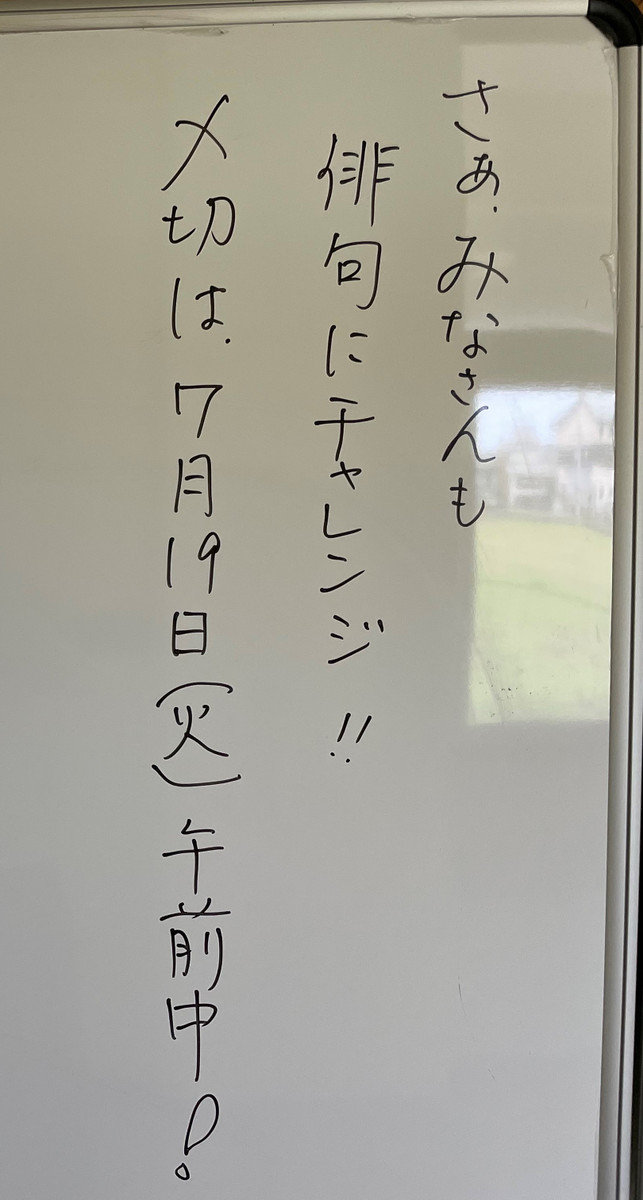 さあ、みなさんも
俳句にチャレンジ!!
〆切は、7月19日(火)午前中!